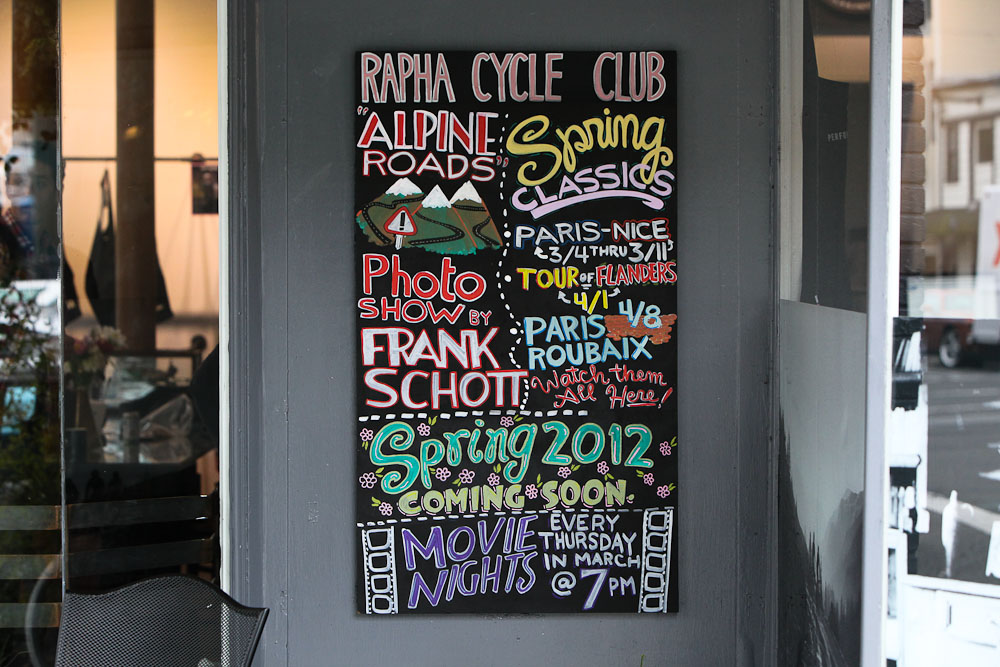 RAPHA CYCLE CLUB
"ALPINE
ROADS"
Photo
SHOW BY
FRANK
SCHOTT
Spring
CLASSICS
PARIS-NICE
3/4 THRU 3/11
TOUR OF FLANDERS
4/1
PARIS 4/8
ROUBAIX
Watch them
All Here!
Spring 2012
COMING SOON.
MOVIE
NIGHTS
EVERY
THURSDAY
IN MARCH
@ 7PM